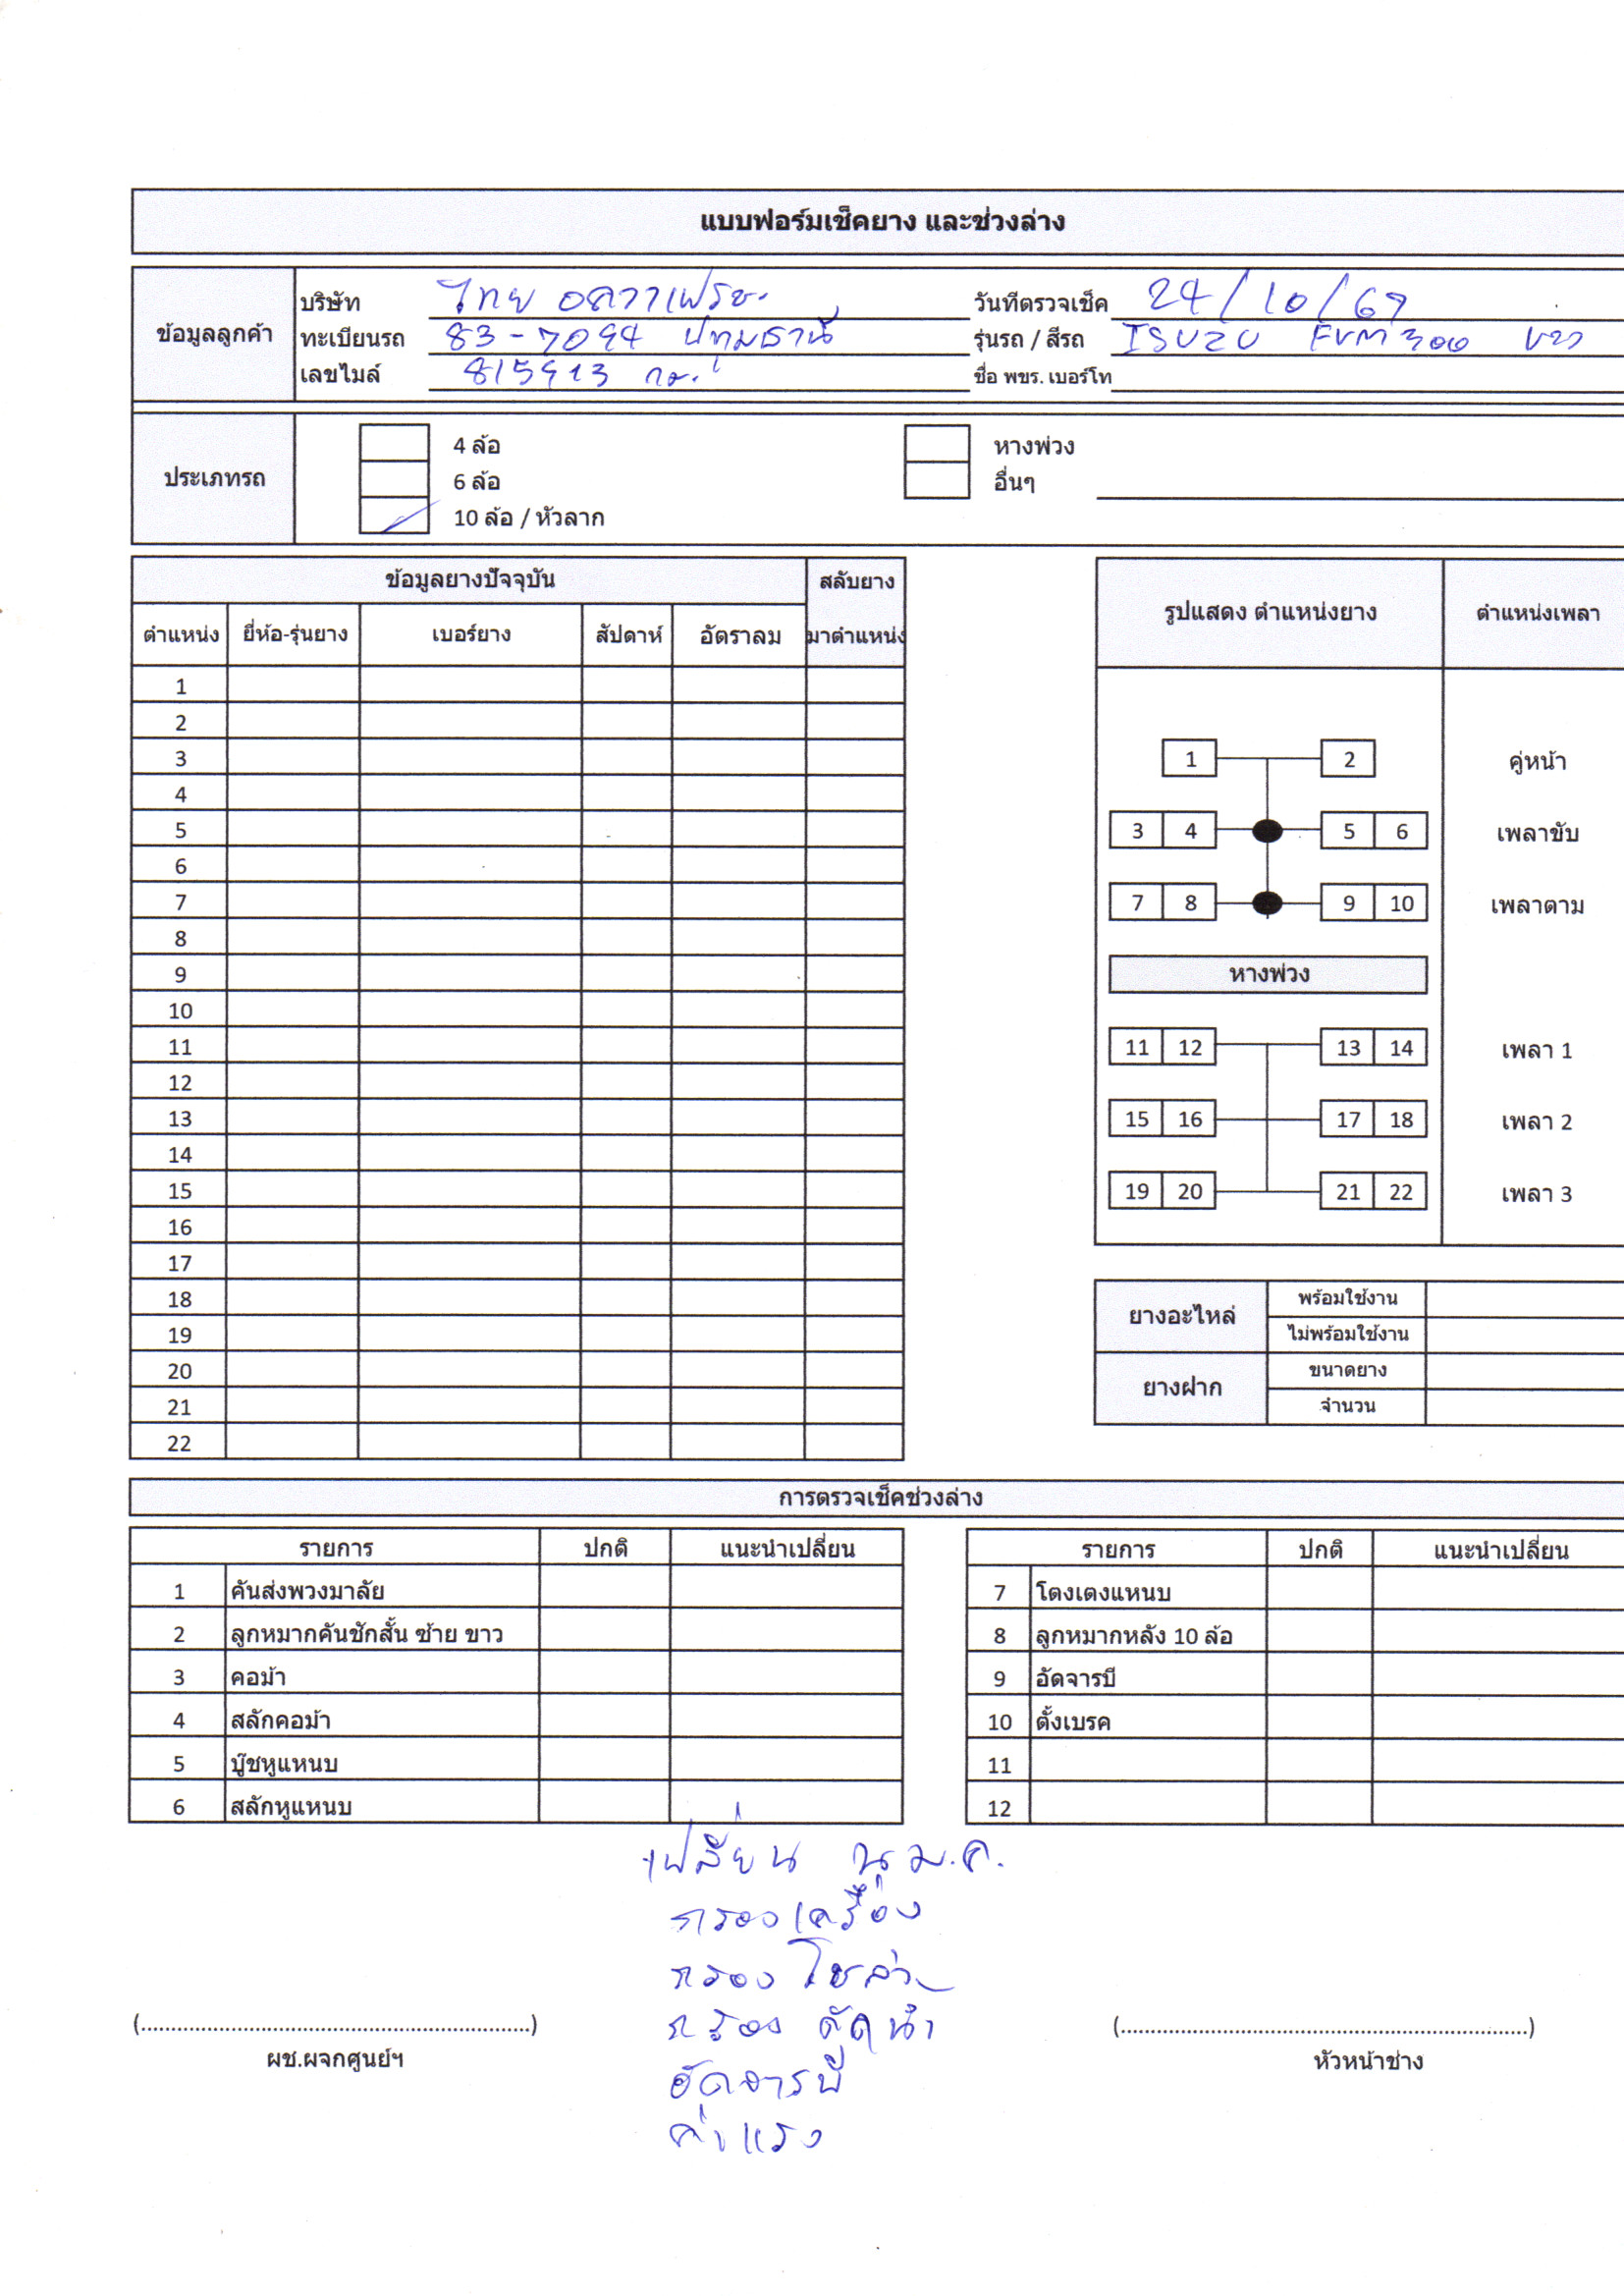 แบบฟอร์มเช็คยาง และช่วงล่าง
ข้อมูลลูกค้า
บริษัท ไทย อควาเฟรช
วันที่ตรวจเช็ค 24/10/67
ทะเบียนรถ 83-7094 ปทุมธานี
รุ่นรถ / สีรถ ISUZU FVM 300 ขาว
เลขไมล์ 815913 กม.
ชื่อ พขร. เบอร์โท
ประเภทรถ
4 ล้อ
6 ล้อ
10 ล้อ / หัวลาก
หางพ่วง
อื่นๆ
ข้อมูลยางปัจจุบัน
สลับยาง
ตำแหน่ง ยี่ห้อ-รุ่นยาง เบอร์ยาง สัปดาห์ อัตราลม มาตำแหน่ง
1
2
3
4
5
6
7
8
9
10
11
12
13
14
15
16
17
18
19
20
21
22
รูปแสดง ตำแหน่งยาง ตำแหน่งเพลา
1 2 คู่หน้า
3 4 5 6 เพลาขับ
7 8 9 10 เพลาตาม
หางพ่วง
11 12 13 14 เพลา 1
15 16 17 18 เพลา 2
19 20 21 22 เพลา 3
ยางอะไหล่
พร้อมใช้งาน
ไม่พร้อมใช้งาน
ยางฝาก
ขนาดยาง
จำนวน
การตรวจเช็คช่วงล่าง
รายการ ปกติ แนะนำเปลี่ยน
1 คันส่งพวงมาลัย
2 ลูกหมากคันชักสั้น ซ้าย ขาว
3 คอม้า
4 สลักคอม้า
5 บู๊ชหูแหนบ
6 สลักหูแหนบ
รายการ ปกติ แนะนำเปลี่ยน
7 โตงเตงแหนบ
8 ลูกหมากหลัง 10 ล้อ
9 อัดจารบี
10 ตั้งเบรค
11
12
เปลี่ยน น.ม.ค.
กรองเครื่อง
กรอง โซล่า
กรอง ดักน้ำ
อัดจารบี
ค่าแรง
(..................................................................)
ผช.ผจกศูนย์ฯ
(.....................................................................)
หัวหน้าช่าง